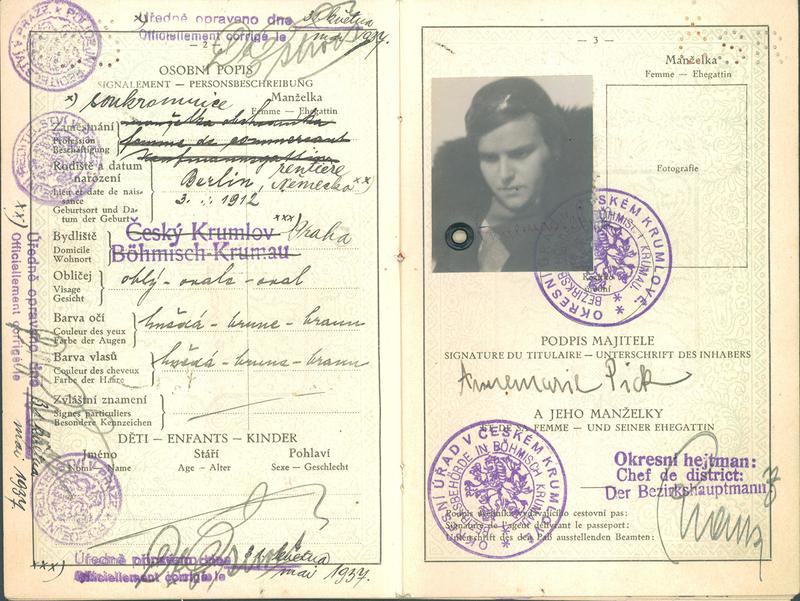 x) Úředně opraveno dne
Officiellement corrigé le
mai 1937.
— 2 —
OSOBNÍ POPIS
SIGNALEMENT — PERSONSBESCHREIBUNG
x) soukromnice
Manželka
Femme — Ehegattin
Zaměstnání
Profession
Beschäftigung
manželka obchodníka
femme de commercant
Kaufmannsgattin
rentière
Rodiště a datum
narození
Lieu et date de nais-
sance
Geburtsort und Da-
tum der Geburt
Berlín, Německo xx)
1912
Bydliště
Domicile
Wohnort
Český Krumlov
Böhmisch-Krumau
xxx) Praha
Obličej
Visage
Gesicht
oblý - ovale - oval
Barva očí
Couleur des yeux
Farbe der Augen
hnědá - brune - braun
Barva vlasů
Couleur des cheveux
Farbe der Haare
hnědá - brune - braun
Zvláštní znamení
Signes particuliers
Besondere Kennzeichen
DĚTI — ENFANTS — KINDER
Jméno
Nom — Name
Stáří
Age — Alter
Pohlaví
Sexe — Geschlecht
xxx) Úředně opraveno dne
Officiellement corrigé le
května
mai 1937.
xx) Úředně opraveno dne
Officiellement corrigé le
mai 1937
— 3 —
Manželka
Femme — Ehegattin
Fotografie
OKRESNÍ ÚŘAD V ČESKÉM KRUMLOVĚ
BEZIRKSBEHÖRDE IN BÖHMISCH KRUMAU
PODPIS MAJITELE
SIGNATURE DU TITULAIRE — UNTERSCHRIFT DES INHABERS
Annemarie Pick
A JEHO MANŽELKY
ET DE SA FEMME — UND SEINER EHEGATTIN
OKRESNÍ ÚŘAD V ČESKÉM KRUMLOVĚ
BEZIRKSBEHÖRDE IN BÖHMISCH KRUMAU
Okresní hejtman:
Chef de district:
Der Bezirkshauptmann
Podpis úředníka vydávajícího cestovní pas:
Signature de l'agent délivrant le passeport:
Unterschrift des den Paß ausstellenden Beamten: